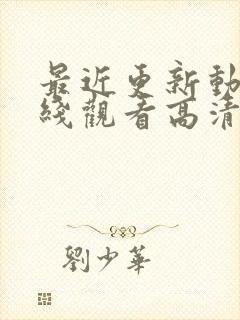 最近更新動
綫觀看高清
劉少華